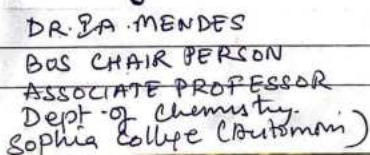 DR. ZA. MENDES
BOS CHAIR PERSON
ASSOCIATE PROFESSOR
Dept of Chemistry.
Sophia College (Autonomous)